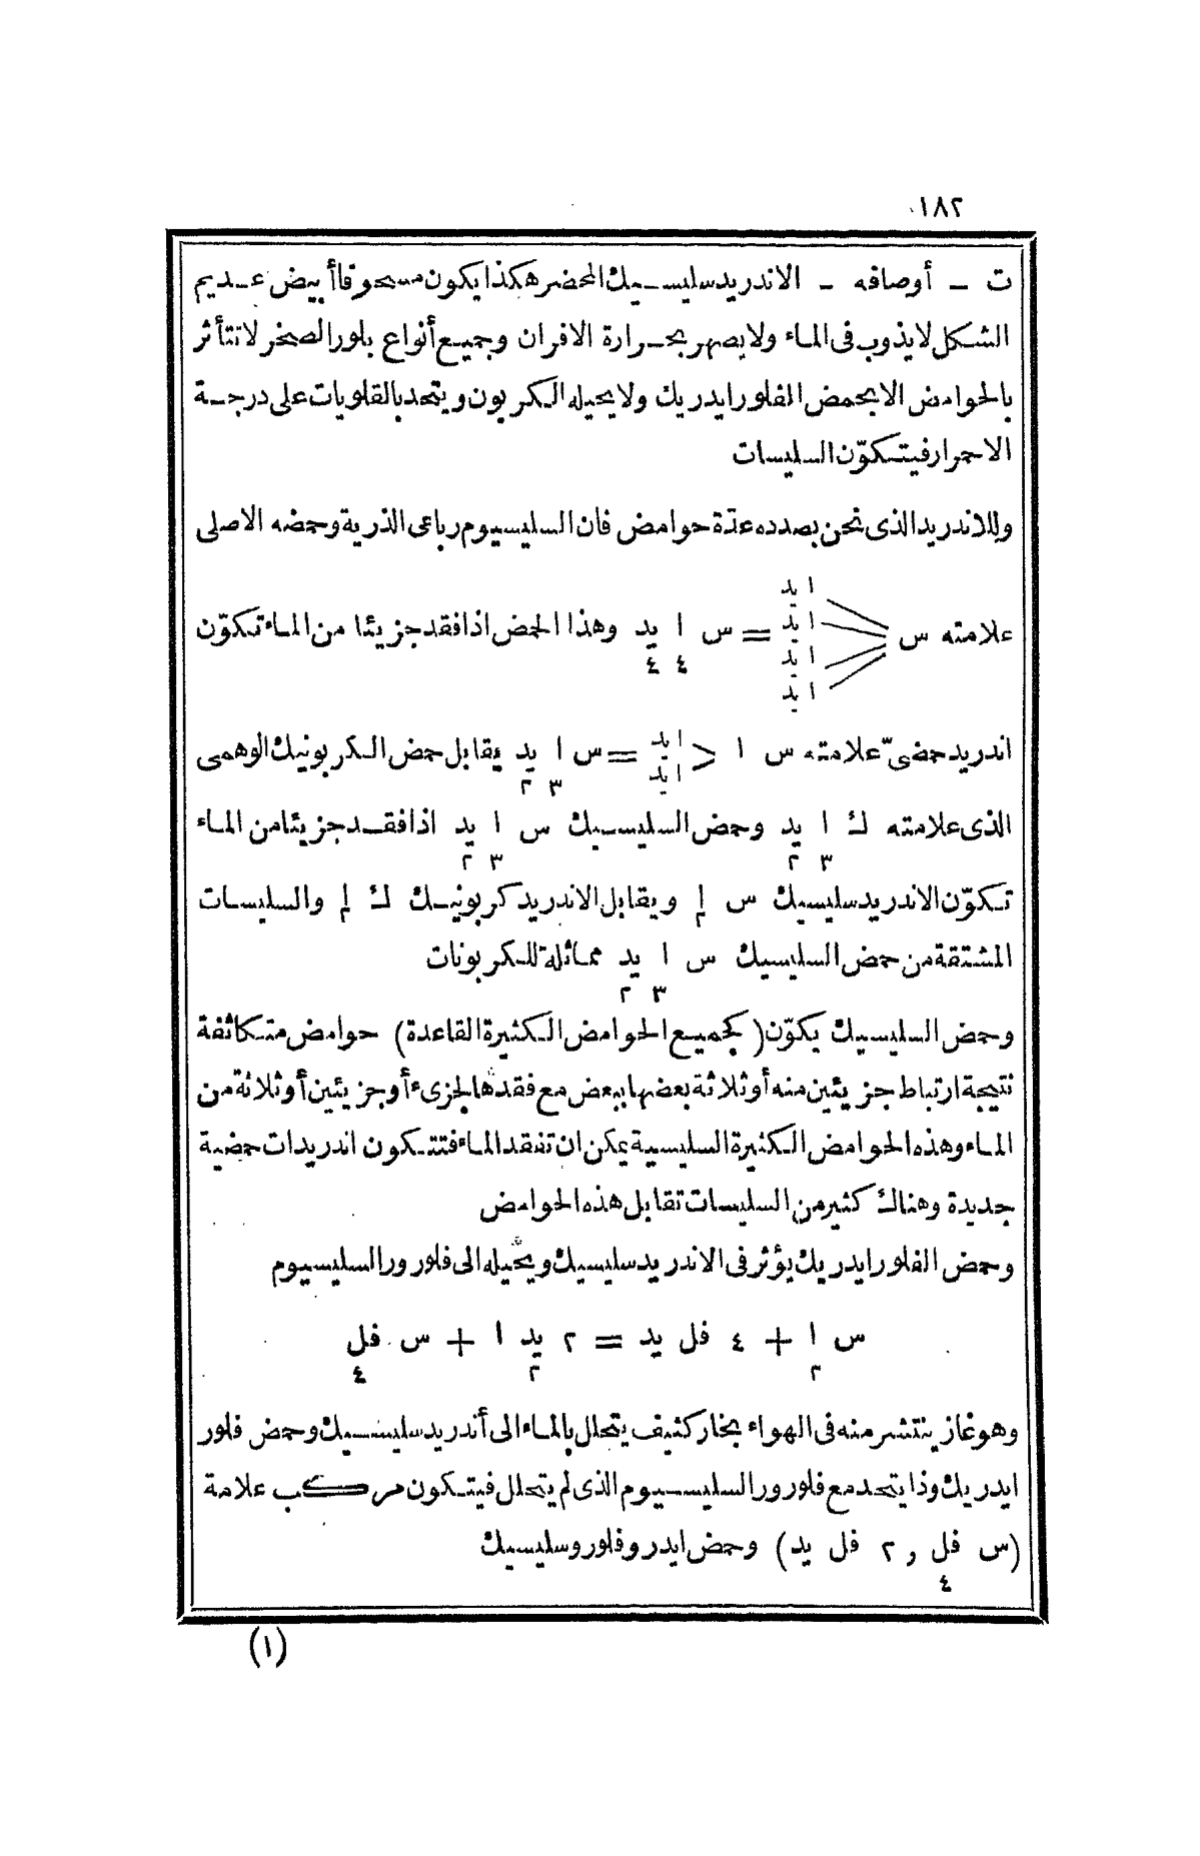 ١٨٢
ت ـ أوصافه ـ الاندريد سليسيك المحضر هكذا يكون مسحوقا أبيض عديم
الشكل لا يذوب فى الماء ولا يصهر بحرارة الافران وجميع أنواع بلور الصخر لا تتأثر
بالحوامض الا بحمض الفلور ايدريك ولا يحيله الكربون ويتحد بالقلويات على درجة
الاحمرار فيتكوّن السليسات
وللاندريد الذى نحن بصدده عدّة حوامض فان السليسيوم رباعى الذرية وحمضه الاصلى
ا يد
ا يد
علامته س = س ا يد وهذا الحمض اذا فقد جزيئا من الماء تكوّن
٤ ٤
ا يد
ا يد
اندريد حمضىّ علامته س ا < ا يد ا يد = س ا يد يقابل حمض الكربونيك الوهمى
٣ ٢
الذى علامته ك ا يد وحمض السليسيك س ا يد اذا فقد جزيئا من الماء
٣ ٢ ٣ ٢
تكوّن الاندريد سليسيك س ا٢ ويقابل الاندريد كربونيك ك ا٢ والسليسات
المشتقة من حمض السليسيك س ا يد مماثلة للكربونات
٣ ٢
وحمض السليسيك يكوّن (كجميع الحوامض الكثيرة القاعدة) حوامض متكاثفة
نتيجة ارتباط جزيئين منه أو ثلاثة بعضها ببعض مع فقدها لجزىء أو جزيئين أو ثلاثة من
الماء وهذه الحوامض الكثيرة السليسية يمكن ان تفقد الماء فتتكون اندريدات حمضية
جديدة وهناك كثير من السليسات تقابل هذه الحوامض
وحمض الفلور ايدريك يؤثر فى الاندريد سليسيك ويحيله الى فلورور السليسيوم
س ا + ٤ فل يد = ٢ يد ا + س فل
٢ ٢ ٤
وهو غاز ينتشر منه فى الهواء بخار كثيف يتحلل بالماء الى أندريد سليسيك وحمض فلور
ايدريك وذا يتحد مع فلورور السليسيوم الذى لم يتحلل فيتكون مركب علامة
(س فل , ٢ فل يد) وحمض ايدروفلوروسليسيك
٤
(١)